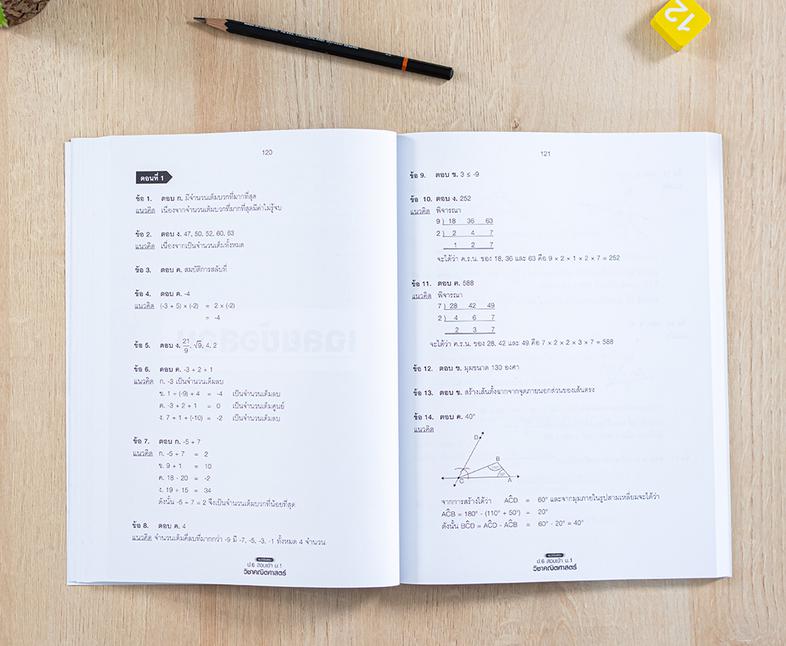 12
120
ตอนที่ 1
ข้อ 1. ตอบ ก. มีจำนวนเต็มบวกที่มากที่สุด
แนวคิด เนื่องจากจำนวนเต็มบวกที่มากที่สุดมีค่าไม่รู้จบ
ข้อ 2. ตอบ ง. 47, 50, 52, 60, 63
แนวคิด เนื่องจากเป็นจำนวนเต็มทั้งหมด
ข้อ 3. ตอบ ค. สมบัติการสลับที่
ข้อ 4. ตอบ ค. -4
แนวคิด (-3 + 5) × (-2) = 2 × (-2)
= -4
ข้อ 5. ตอบ ง. 21/9, √9, 4, 2
ข้อ 6. ตอบ ค. -3 + 2 + 1
แนวคิด ก. -3 เป็นจำนวนเต็มลบ
ข. 1 ÷ (-9) + 4 = -4 เป็นจำนวนเต็มลบ
ค. -3 + 2 + 1 = 0 เป็นจำนวนเต็มศูนย์
ง. 7 + 1 + (-10) = -2 เป็นจำนวนเต็มลบ
ข้อ 7. ตอบ ก. -5 + 7
แนวคิด ก. -5 + 7 = 2
ข. 9 + 1 = 10
ค. 18 - 20 = -2
ง. 19 + 15 = 34
ดังนั้น -5 + 7 = 2 จึงเป็นจำนวนเต็มบวกที่น้อยที่สุด
ข้อ 8. ตอบ ค. 4
แนวคิด จำนวนเต็มคี่ลบที่มากกว่า -9 มี -7, -5, -3, -1 ทั้งหมด 4 จำนวน
ป.6 สอบเข้า ม.1
วิชาคณิตศาสตร์
121
ข้อ 9. ตอบ ข. 3 ≤ -9
ข้อ 10. ตอบ ง. 252
แนวคิด พิจารณา
9 ) 18 36 63
2 ) 2 4 7
1 2 7
จะได้ว่า ค.ร.น. ของ 18, 36 และ 63 คือ 9 × 2 × 1 × 2 × 7 = 252
ข้อ 11. ตอบ ค. 588
แนวคิด พิจารณา
7 ) 28 42 49
2 ) 4 6 7
2 3 7
จะได้ว่า ค.ร.น. ของ 28, 42 และ 49 คือ 7 × 2 × 2 × 3 × 7 = 588
ข้อ 12. ตอบ ข. มุมขนาด 130 องศา
ข้อ 13. ตอบ ข. สร้างเส้นตั้งฉากจากจุดภายนอกส่วนของเส้นตรง
ข้อ 14. ตอบ ค. 40°
แนวคิด
D
B
C
A
จากการสร้างได้ว่า AĈD = 60° และจากมุมภายในรูปสามเหลี่ยมจะได้ว่า
AĈB = 180° - (110° + 50°) = 20°
ดังนั้น BĈD = AĈD - AĈB = 60° - 20° = 40°
ป.6 สอบเข้า ม.1
วิชาคณิตศาสตร์